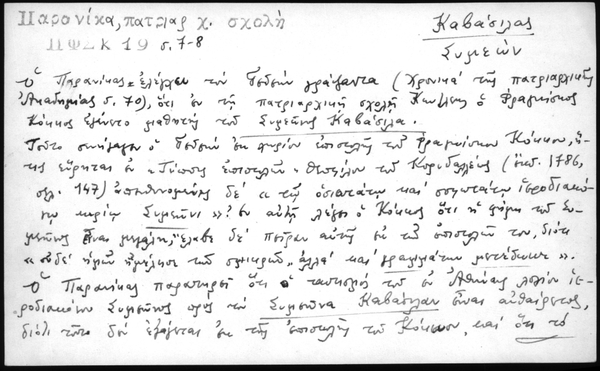 Παρανίκα, πατριαρχ. σχολή
ΠΦΣΚ 19 σ. 7-8
Καβάσιλας
Συμεών
Ὁ Παρανίκας ἐλέγχει τὸν Γεδεὼν γράψαντα (Χρονικὰ τῆς πατριαρχικῆς
Ἀκαδημίας σ. 70), ὅτι ἐν τῇ πατριαρχικῇ σχολῇ Κων/λεως ὁ Φραγκίσκος
Κόκκος ἐγένετο μαθητὴς τοῦ Συμεῶνος Καβάσιλα.
Τοῦτο συνάγει ὁ Γεδεὼν ἐκ τῆς ἐπιστολῆς τοῦ Φραγκίσκου Κόκκου, ἥ-
τις εὕρηται ἐν « ἐπιστολῶν » Θεοφίλου τοῦ Κορυδαλέως (ἐκδ. 1786,
σελ. 147) ἀπευθυνομένης δὲ « τῷ ὁσιωτάτῳ καὶ ἱεροδιακό-
νῳ κυρίῳ Συμεῶνι »? ἐν αὐτῇ λέγει ὁ Κόκκος ὅτι ἡ φήμη τοῦ Συ-
μεῶνος εἶναι μεγάλη, ἔλαβε δὲ πεῖραν αὐτῆς ἐκ τῶν ἐπιστολῶν του, διότι
« οὐδὲ ἡμῶν ἠμέλησε τῶν σμικρῶν, ἀλλὰ καὶ γραμμάτων μετέδωκε ».
Ὁ Παρανίκας παρατηρεῖ ὅτι ὁ ταυτισμὸς τοῦ ἐν Ἀθήναις λογίου ἱε-
ροδιακόνου Συμεῶνος πρὸς τὸν Συμεῶνα Καβάσιλαν εἶναι αὐθαίρετος,
διότι τοῦτο δὲν ἐξάγεται ἐκ τῆς ἐπιστολῆς τοῦ Κόκκου, καὶ ὅτι τὸ